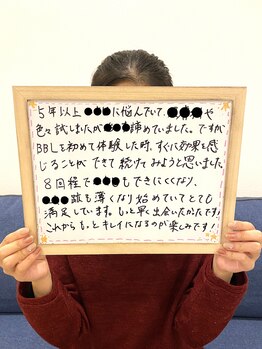 5年以上●●●に悩んでいて、●●●や
色々試しましたが●●●諦めていました。ですが
BBLを初めて体験した時、すぐに効果を感
じることができて続けてみようと思いました。
8回程で●●●もできにくくなり、
●●●跡も薄くなり始めていてとても
満足しています。もっと早く出会いたかったです!
これからもっとキレイになるのが楽しみです!